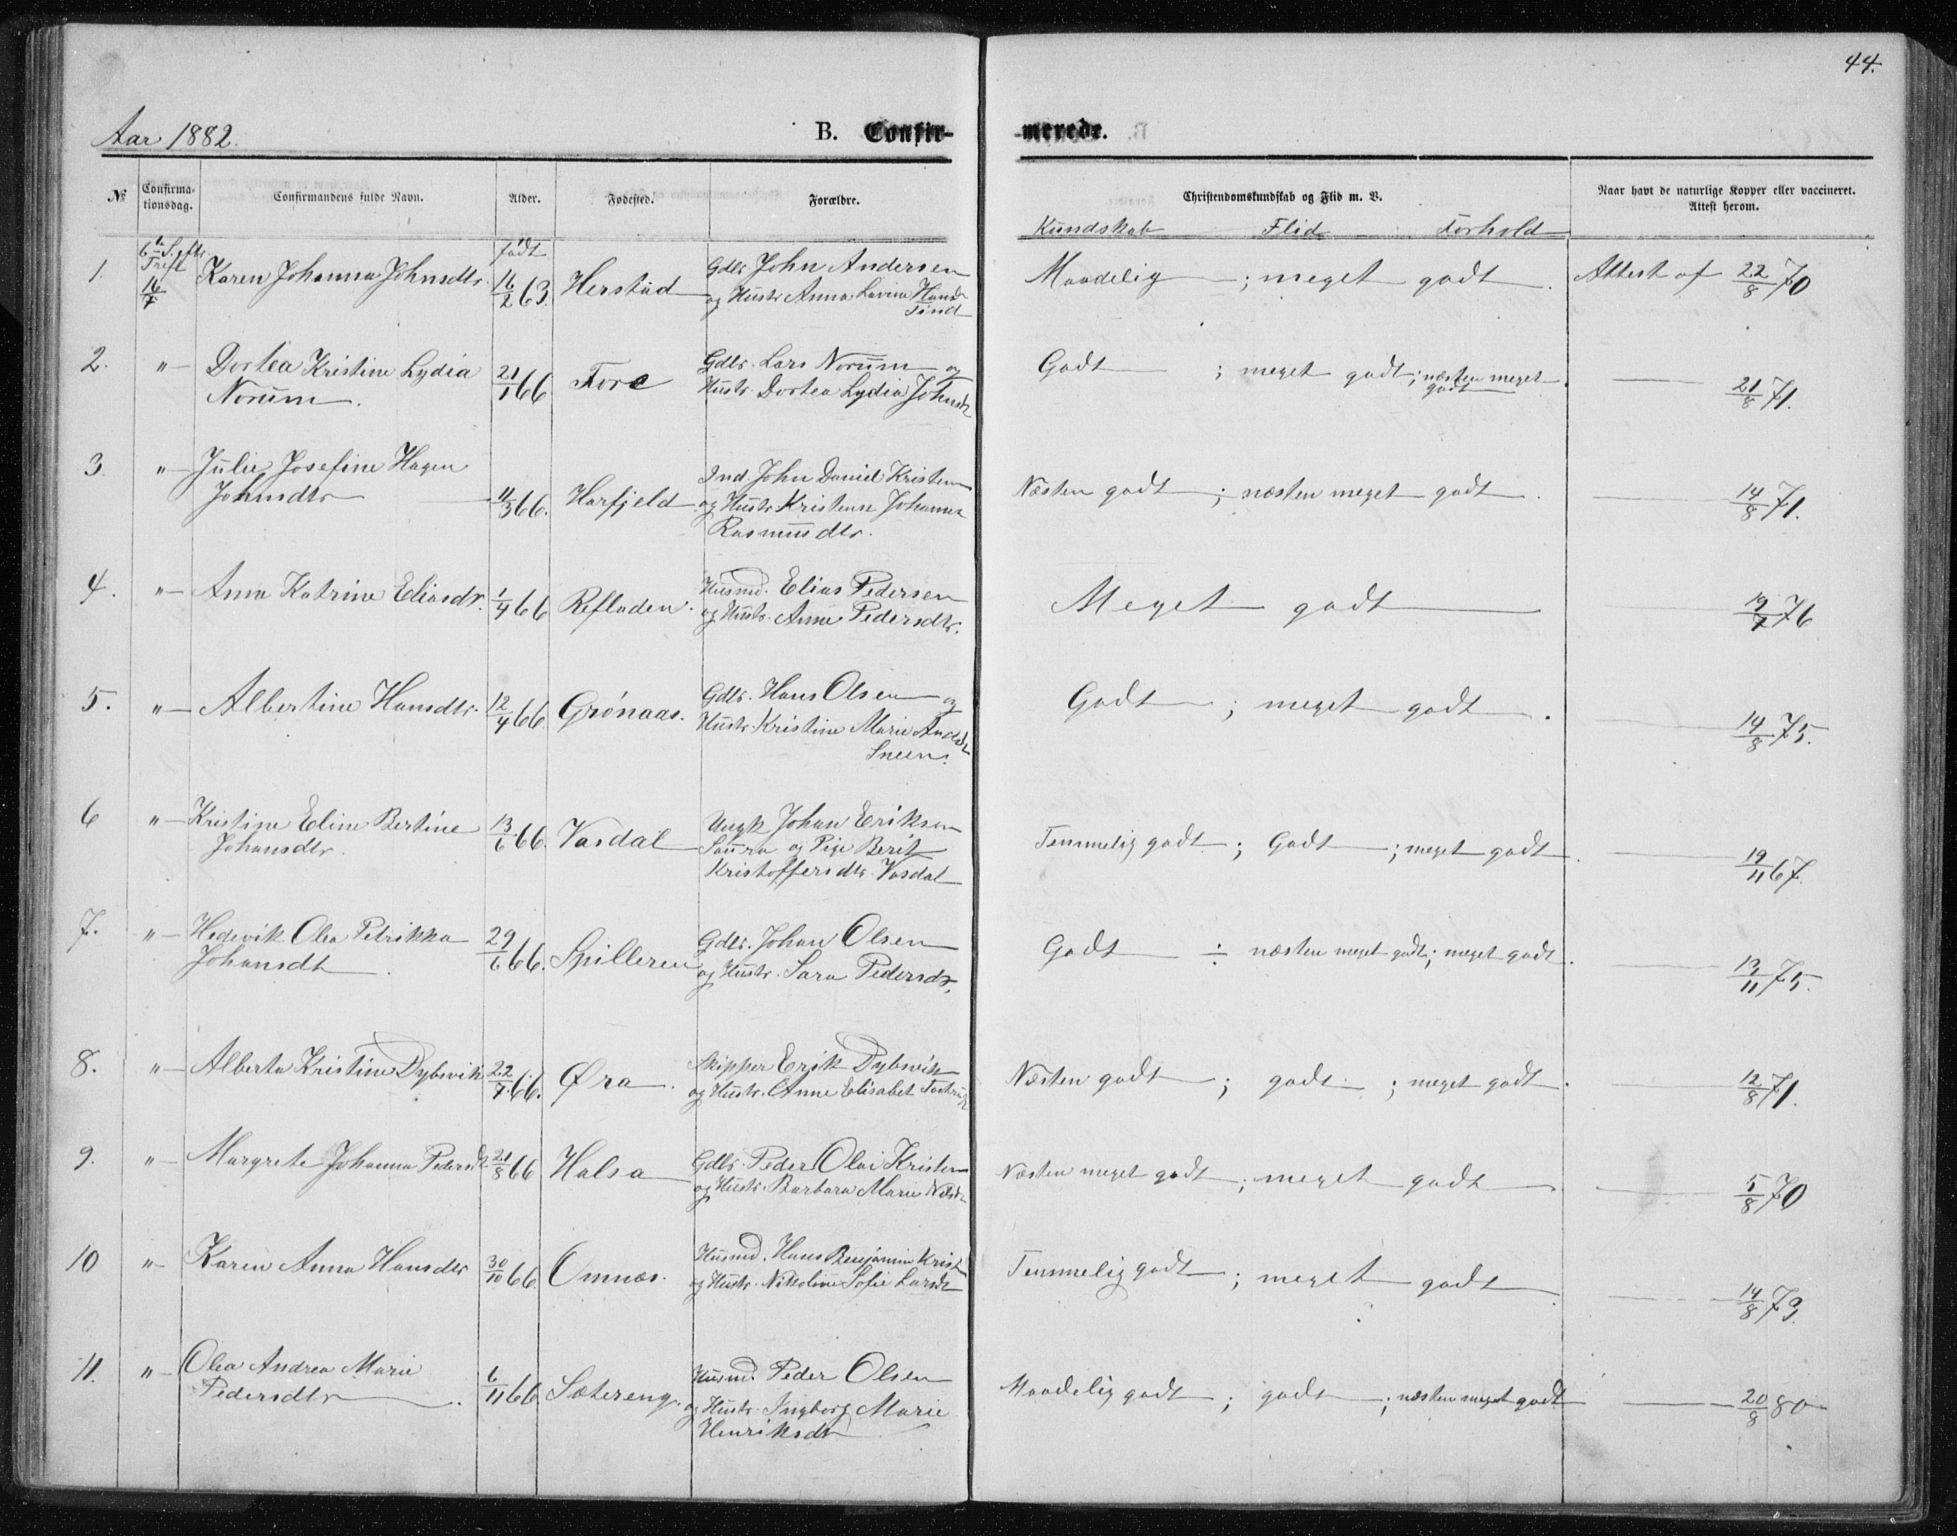 44.
Aar 1882.
B. Confir- merede.
№ Confirma- tionsdag. Confirmandens fulde Navn. Alder. Fødested. Forældre. Christendomskundskab og Flid m. V. Naar havt de naturlige Kopper eller vaccineret. Attest herom.
Kundskab Flid Forhold
6te S. eftr. Trefl 16/7 født
1. Karen Johanna Johnsdtr. 16/2 63. Herstad Gdbr. John Andersen Maadelig ; meget godt . Attest af 22/8 70
og Hustr. Anna Lavina Hansdr
Tind
2. „ Dortea Kristine Lydia 21/1 66 Fore Gdbr. Lars Norum og Godt ; meget godt ; næsten meget
Norum. Hustr. Dortea Lydia Johnsdr godt 21/8 71.
3. „ Julie Josefine Hagen
Johnsdtr 11/3 66. Harfjeld Ind. John Daniel Kristens Næsten godt ; næsten meget godt . 14/8 71.
og Hustr. Kristense Johanna
Rasmusdtr.
4. „ Anna Katrine Eliasdr. 1/4 66 Refladen. Husmd. Elias Pedersen Meget godt 19/7 76
og Hustr. Anne Pedersdtr.
5. „ Albertine Hansdtr. 12/4 66. Grønaas. Gdbr. Hans Olsen og Godt ; meget godt . 14/8 75.
Hustr. Kristine Marie Andsdr
Sneen.
6 „ Kristine Eline Bertine 13/6 66. Vasdal Ungk Johan Eriksen Temmelig godt ; Godt ; meget godt . 19/11 67.
Johansdtr. Saura og Pige Berit
Kristoffersdtr. Vasdal
7. „ Hedevik Olea Petrikka 29/6 66. Spilleren Gdbr. Johan Olsen Godt ÷ næsten meget godt ; meget godt . 13/11 75.
Johansdt . og Hustr. Sara Pedersdr.
8. „ Alberta Kristine Dybsvik 22/7 66. Øra . Skipper Erik Dybsvik Næsten godt ; godt ; meget godt . 12/8 71.
og Hustr. Anne Elisabet
9. „ Margrete Johanna Pedersdr. 21/8 66 Halsa Gdbr. Peder Olai Kristens Næsten meget godt ; meget godt 5/8 70
og Hustr. Barbara Marie Nilsdr
10 „ Karen Anna Hansdtr 30/10 66. Omnæs. Husmd. Hans Benjamin Krist Temmelig godt ; meget godt . 14/8 73.
og Hustr. Nikoline Sofie Larsdr
11. „ Olea Andrea Marie 6/11 66 Sætereng. Husmd. Peder Olsen Maadelig godt ; godt ; næsten meget godt 20/8 80
Pedersdtr . og Hustr. Ingborg Marie
Henriksdr